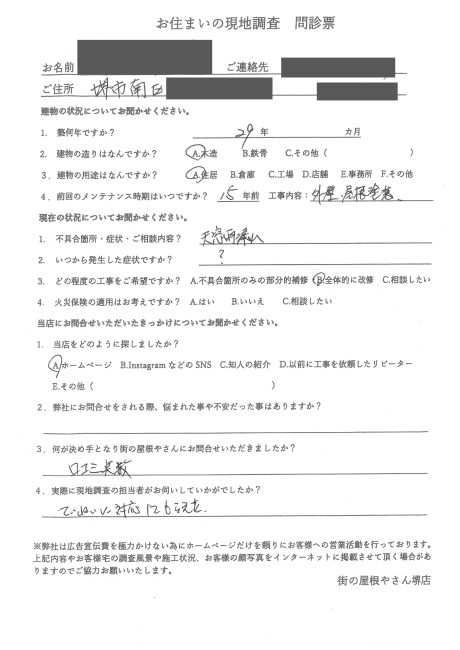 お住まいの現地調査　問診票
お名前　ご連絡先
ご住所　堺市南区
建物の状況についてお聞かせください。
1. 築何年ですか？　29 年　カ月
2. 建物の造りはなんですか？　A.木造　B.鉄骨　C.その他（　）
3. 建物の用途はなんですか？　A.住居　B.倉庫　C.工場　D.店舗　E.事務所　F.その他
4. 前回のメンテナンス時期はいつですか？　15 年前　工事内容：外壁、屋根塗装
現在の状況についてお聞かせください。
1. 不具合箇所・症状・ご相談内容？　天窓雨漏り
2. いつから発生した症状ですか？　？
3. どの程度の工事をご希望ですか？　A.不具合箇所のみの部分的補修　B.全体的に改修　C.相談したい
4. 火災保険の適用はお考えですか？　A.はい　B.いいえ　C.相談したい
当店にお問合せいただいたきっかけについてお聞かせください。
1. 当店をどのように探しましたか？
A.ホームページ　B.InstagramなどのSNS　C.知人の紹介　D.以前に工事を依頼したリピーター
E.その他（　）
2．弊社にお問合せをされる際、悩まれた事や不安だった事はありますか？
3．何が決め手となり街の屋根やさんにお問合せいただきましたか？
口コミ点数
4．実際に現地調査の担当者がお伺いしていかがでしたか？
ていねいに対応してもらえた。
※弊社は広告宣伝費を極力かけない為にホームページだけを頼りにお客様への営業活動を行っております。
上記内容やお客様宅の調査風景や施工状況、お客様の顔写真をインターネットに掲載させて頂く場合があ
りますのでご協力お願いいたします。
街の屋根やさん堺店